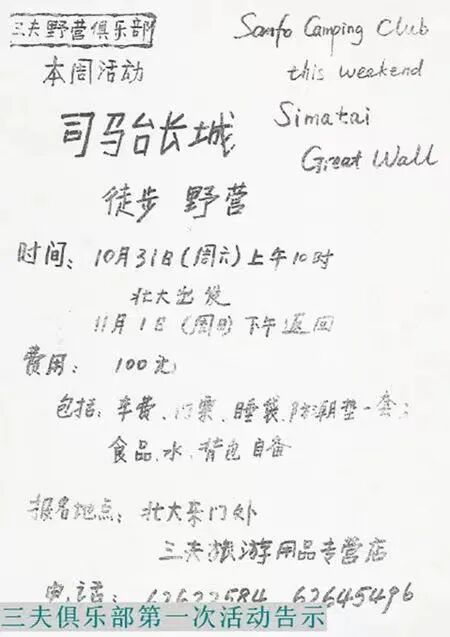 三夫野营俱乐部
本周活动
司马台长城
徒步 野营
Sanfo Camping Club
this weekend
Simatai
Great Wall
时间：10月31日(周六)上午10时
北大出发
11月1日(周日)下午返回
费用：100元
包括：车费、门票、睡袋、防潮垫一套；
食品、水、背包自备
报名地点：北大东门外
三夫旅游用品专营店
电话：62622584 62645496
三夫俱乐部第一次活动告示